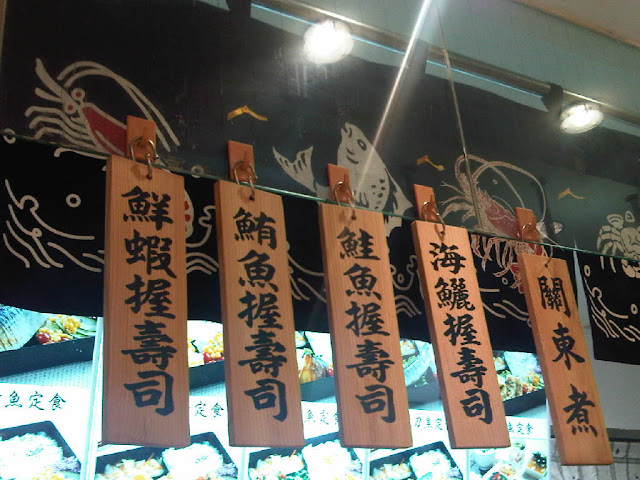 鮮蝦握壽司
鮪魚握壽司
鮭魚握壽司
海鱺握壽司
關東煮
魚定食
定食
魚定食
刀魚定食